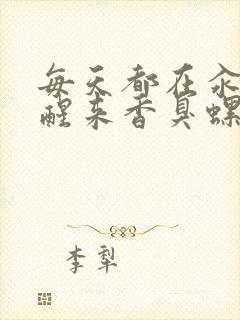 每天都在汆
醒来香臭螺
李犁